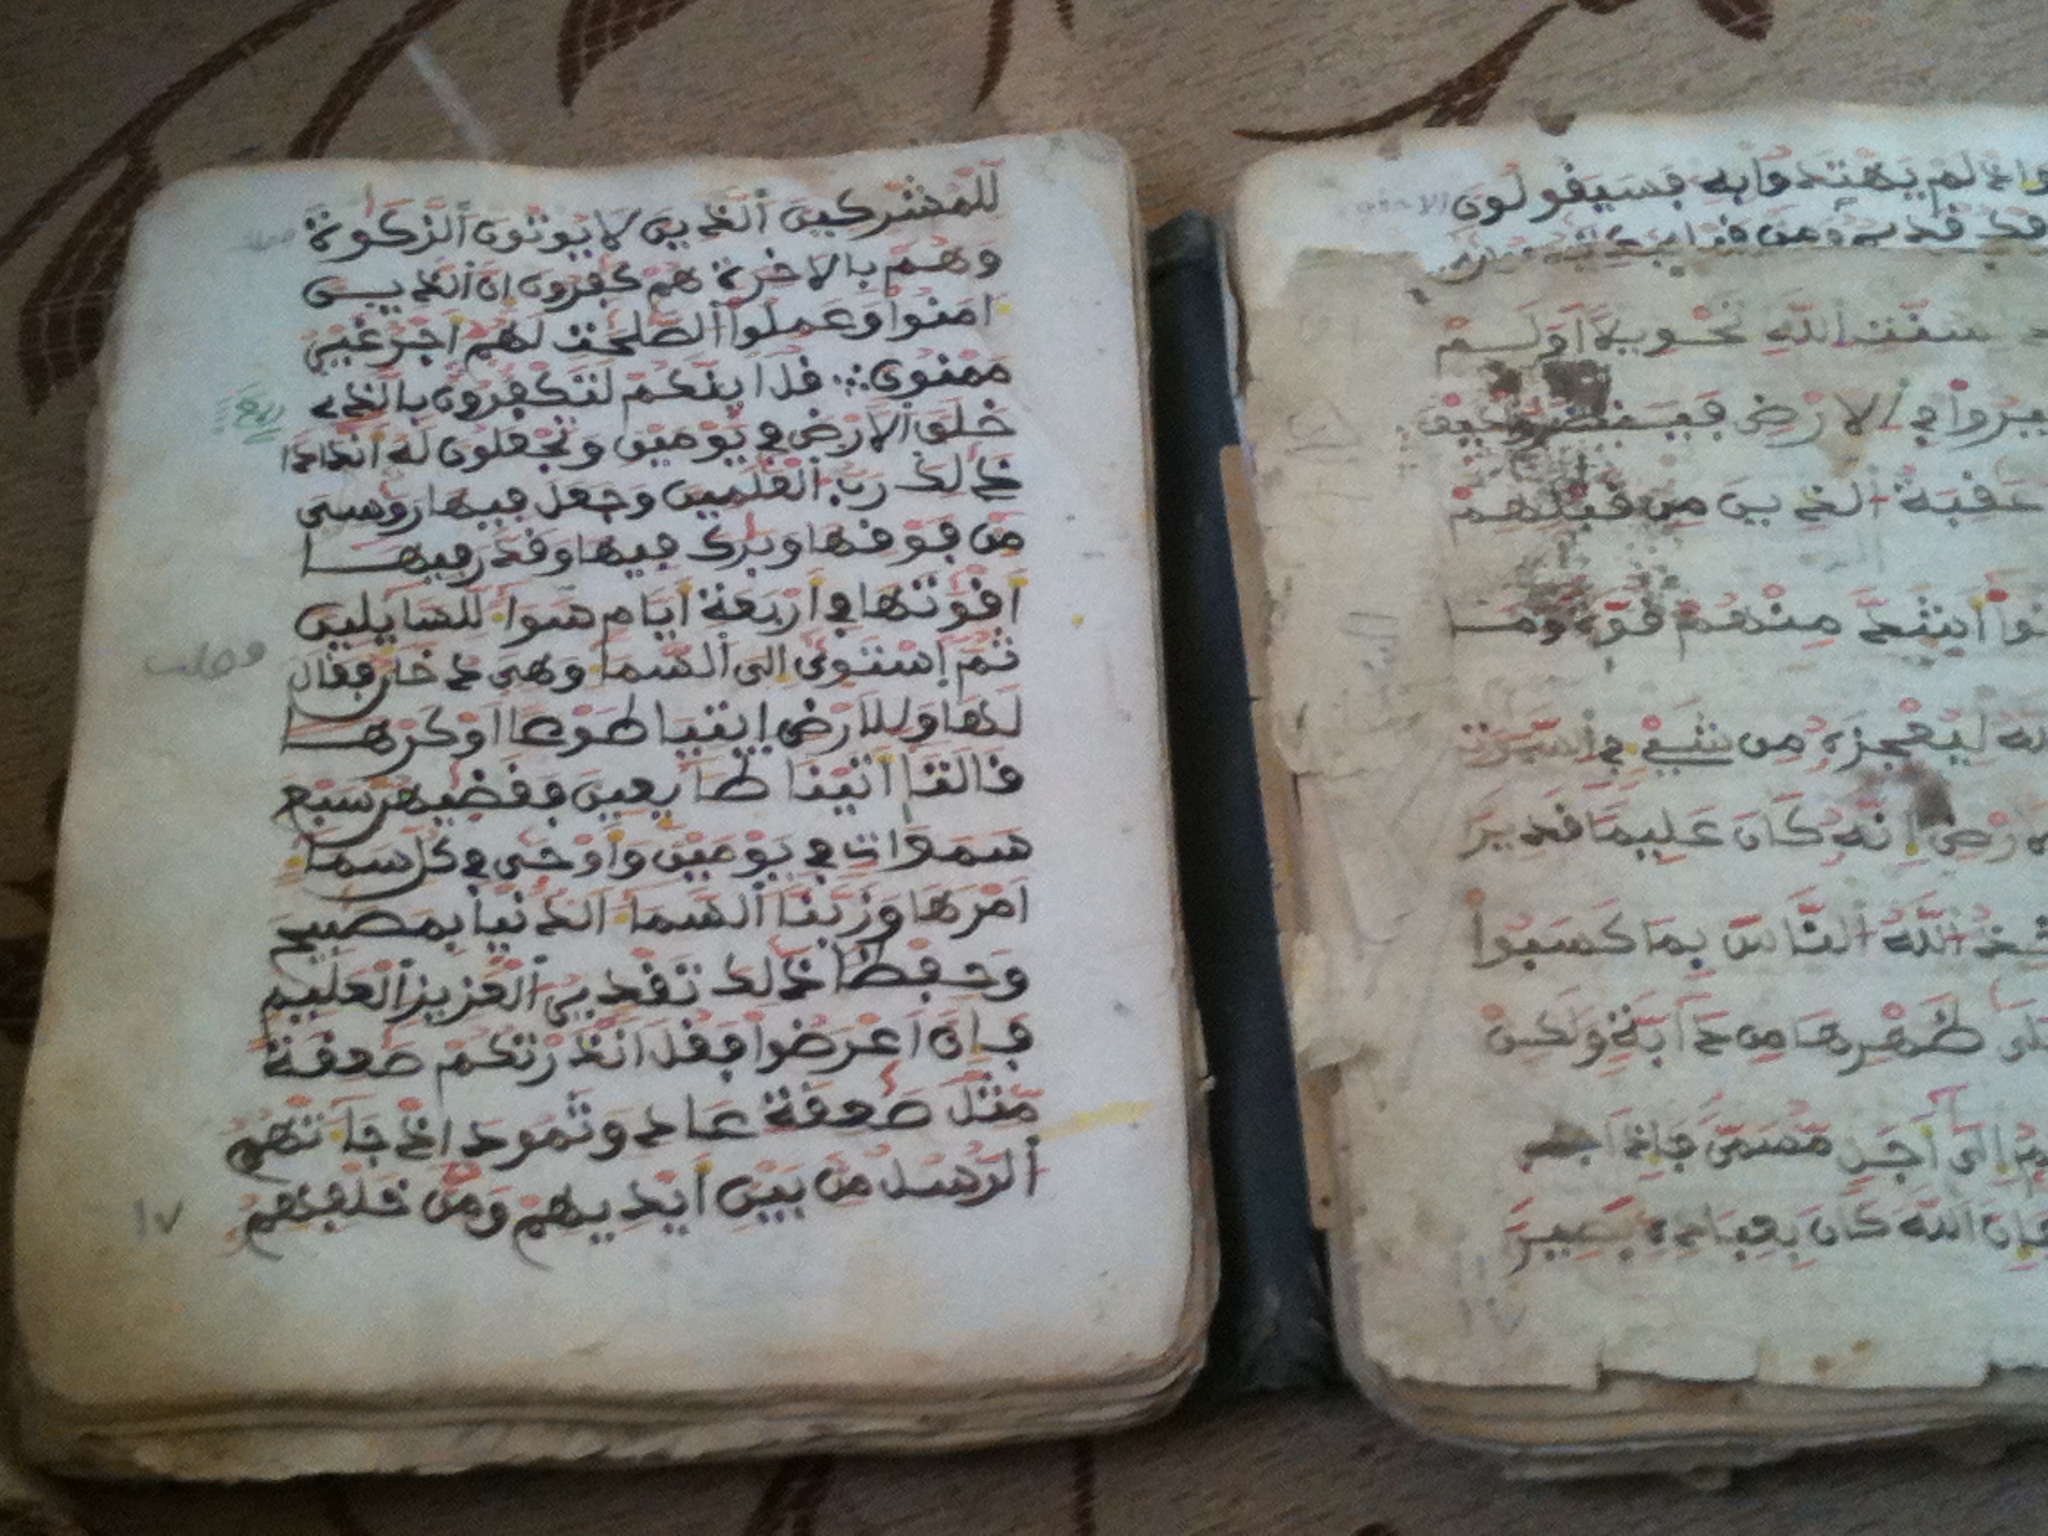 وا ذ لم يهتدوا به فسيقولون
فك قديم ومن قبله كتب
سنت الله تحويلا اولم
يروا في الارض فينظروا كيف
عقبة الذين من قبلهم
نوا اشد منهم قوة وما
لله ليعجزه من شيء في السموت
لارض انه كان عليما قديرا
خذ الله الناس بما كسبوا
على ظهرها من دابة ولكن
هم الى اجل مسمى فاذا جا اجلهم
فان الله كان بعباده بصيرا
للمشركين الذين لا يوتون الزكوة
وهم بالاخرة هم كفرون ان الذين
امنوا وعملوا الصلحت لهم اجر غير
ممنون قل اينكم لتكفرون بالذي
ربع
خلق الارض في يومين وتجعلون له اندادا
ذلك رب العلمين وجعل فيها روسى
من فوقها وبرك فيها وقدر فيها
اقوتها في اربعة ايام سوا للسايلين
ثم استوى الى السما وهي دخان فقال
فصلت
لها وللارض ايتيا طوعا او كرها
قالتا اتينا طايعين فقضيهن سبع
سموات في يومين واوحى في كل سما
امرها وزينا السما الدنيا بمصبيح
وحفظا ذلك تقدير العزيز العليم
فان اعرضوا فقل انذرتكم صعقة
مثل صعقة عاد وثمود اذ جاتهم
الرسل من بين ايديهم ومن خلفهم
١٧